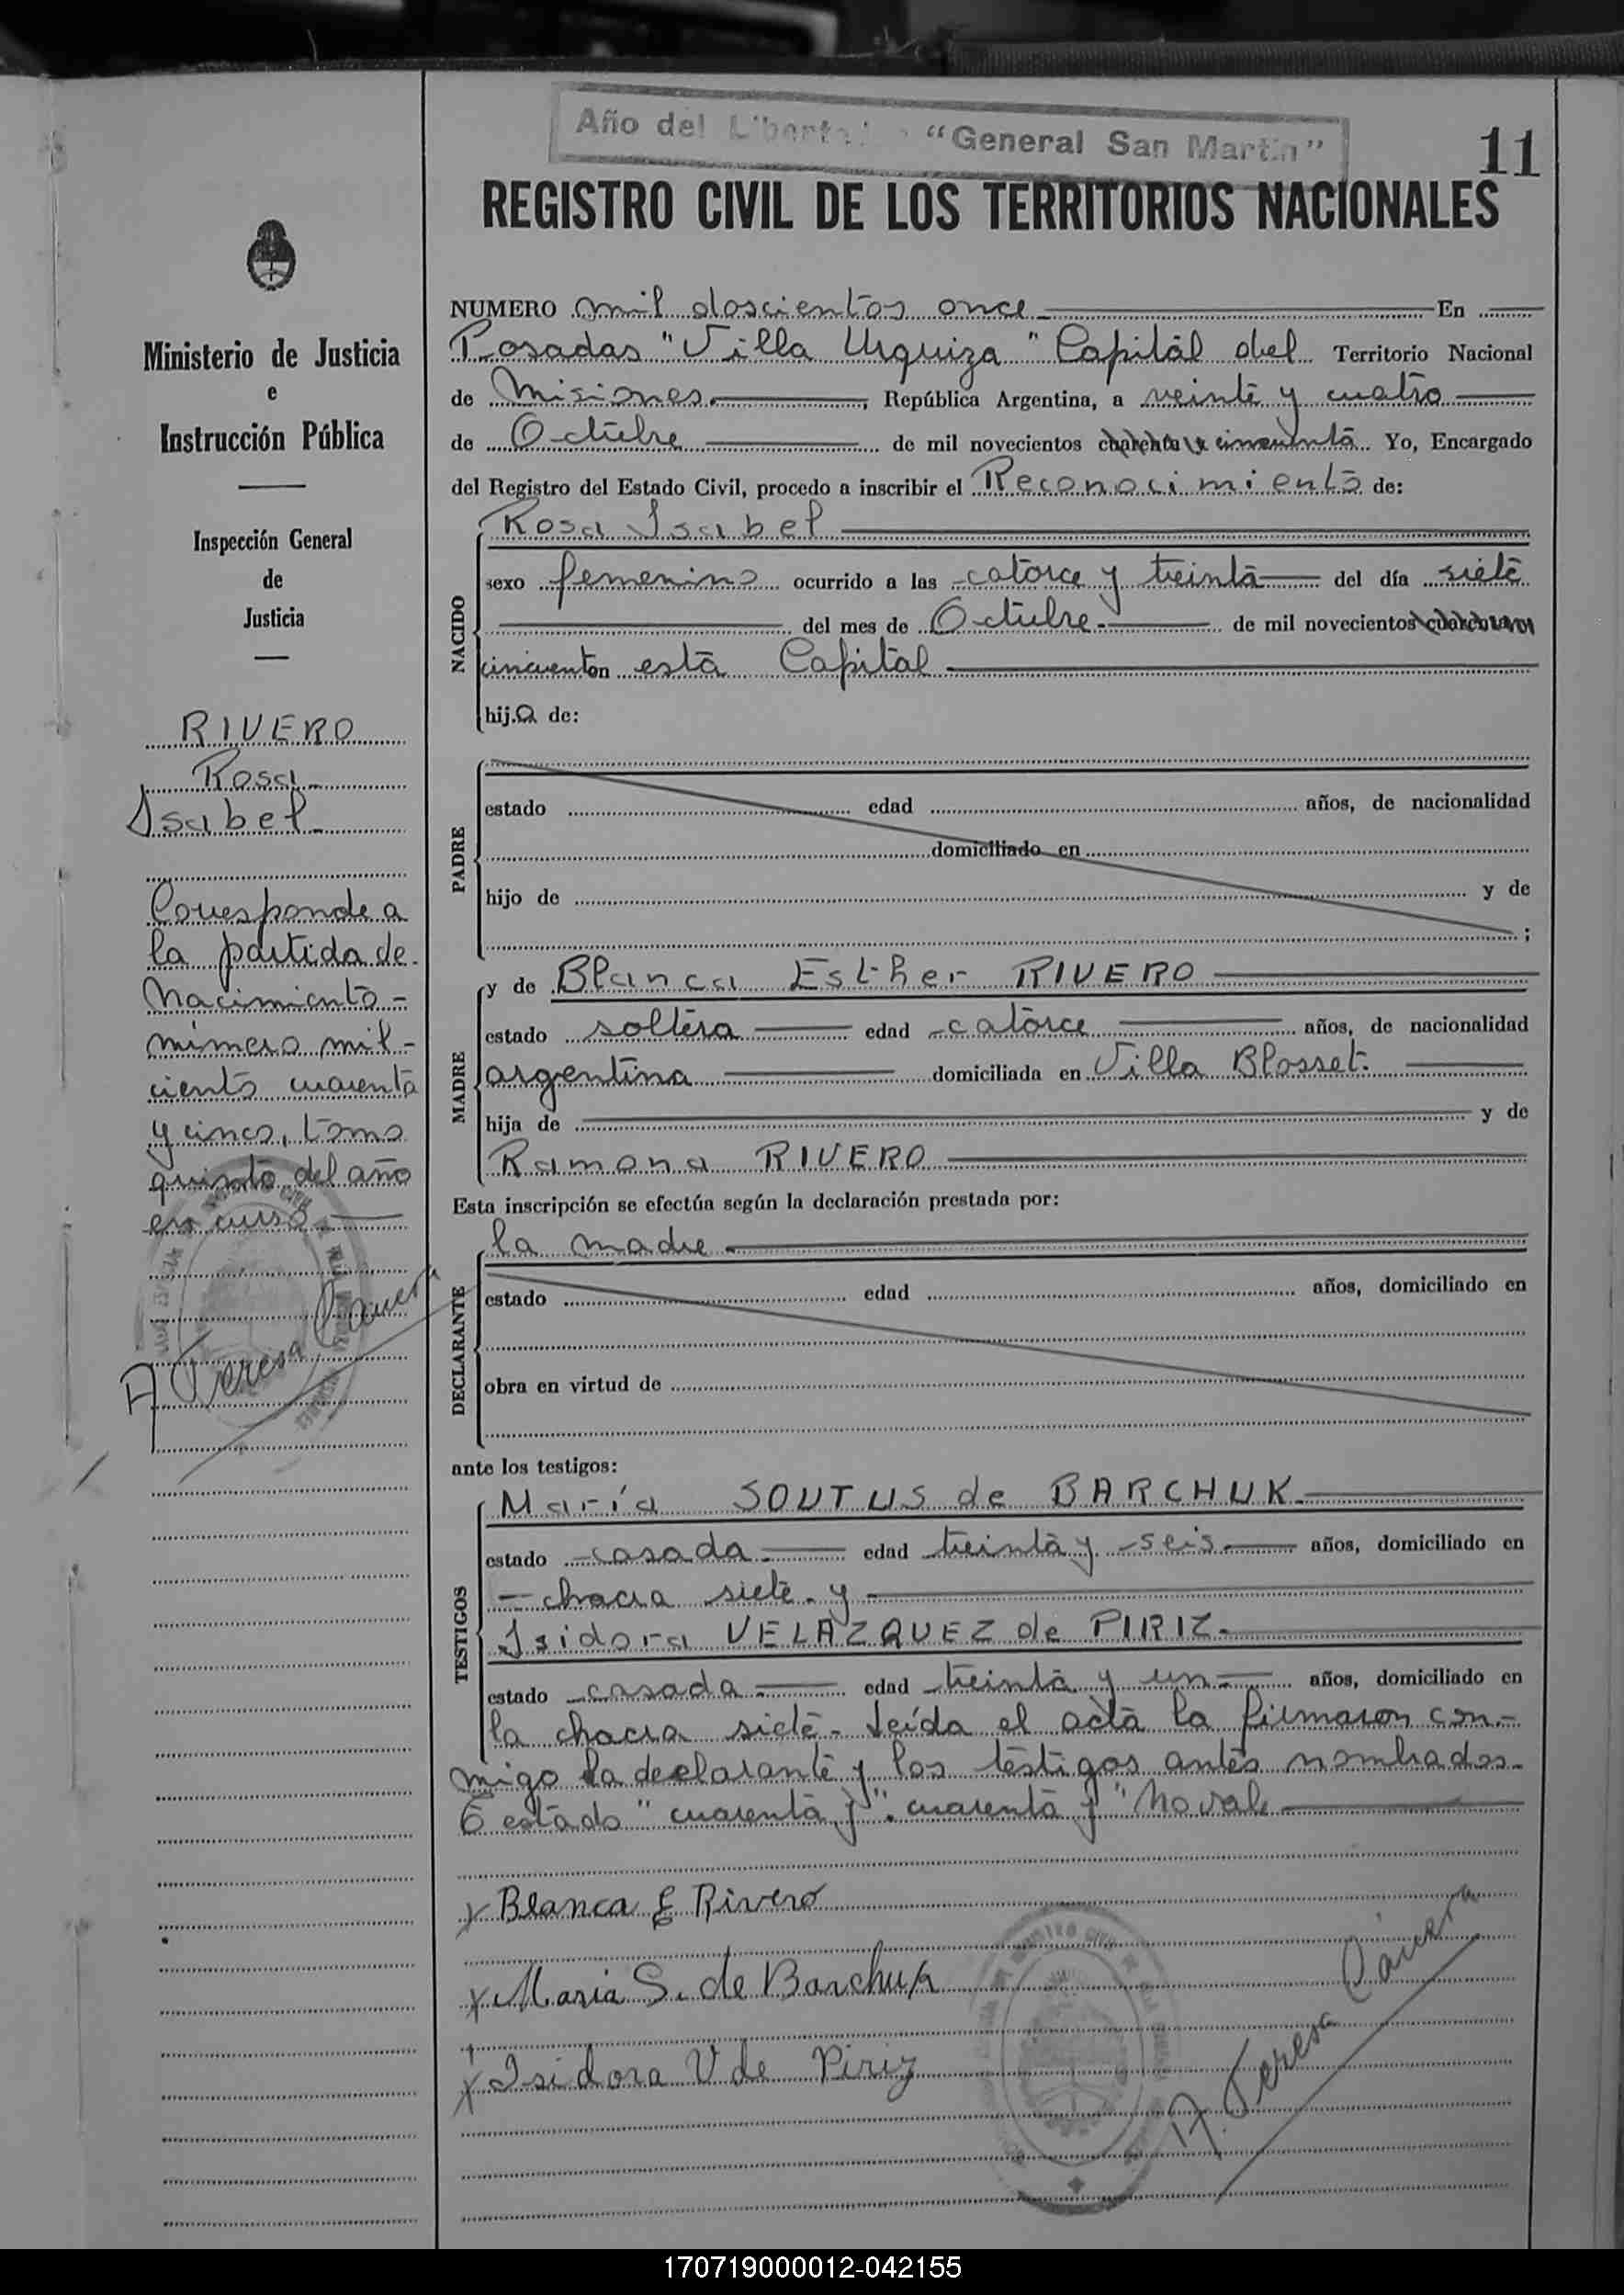 Año del Libertador "General San Martín"
11
REGISTRO CIVIL DE LOS TERRITORIOS NACIONALES
Ministerio de Justicia
e
Instrucción Pública
Inspección General
de
Justicia
RIVERO
Rosa
Isabel
Corresponde a
la partida de
Nacimiento
número mil
ciento cuarenta
y cinco, tomo
quinto del año
en curso
A Teresa
NUMERO mil doscientos once En
Posadas "Villa Urquiza" Capital del Territorio Nacional
de Misiones, República Argentina, a veinte y cuatro
de Octubre de mil novecientos cuarenta y cincuenta Yo, Encargado
del Registro del Estado Civil, procedo a inscribir el Reconocimiento de:
NACIDO
Rosa Isabel
sexo femenino ocurrido a las catorce y treinta del día siete
del mes de Octubre de mil novecientos cuarenta
cincuenta en esta Capital
hija de:
PADRE
estado edad años, de nacionalidad
domiciliado en
hijo de y de
;
MADRE
y de Blanca Esther RIVERO
estado soltera edad catorce años, de nacionalidad
argentina domiciliada en Villa Blosset.
hija de y de
Ramona RIVERO
Esta inscripción se efectúa según la declaración prestada por:
DECLARANTE
la madre
estado edad años, domiciliado en
obra en virtud de
ante los testigos:
TESTIGOS
María SOUTUS de BARCHUK
estado casada edad treinta y seis años, domiciliado en
chacra siete y
Isidora VELAZQUEZ de PIRIZ
estado casada edad treinta y un años, domiciliado en
la chacra siete. Leída el acta la firmaron con-
migo la declarante y los testigos antes nombrados.
Testado "cuarenta y" "cuarenta y" No vale
x Blanca E Rivero
x Maria S. de Barchuk
x Isidora V de Piriz
A. Teresa
170719000012-042155